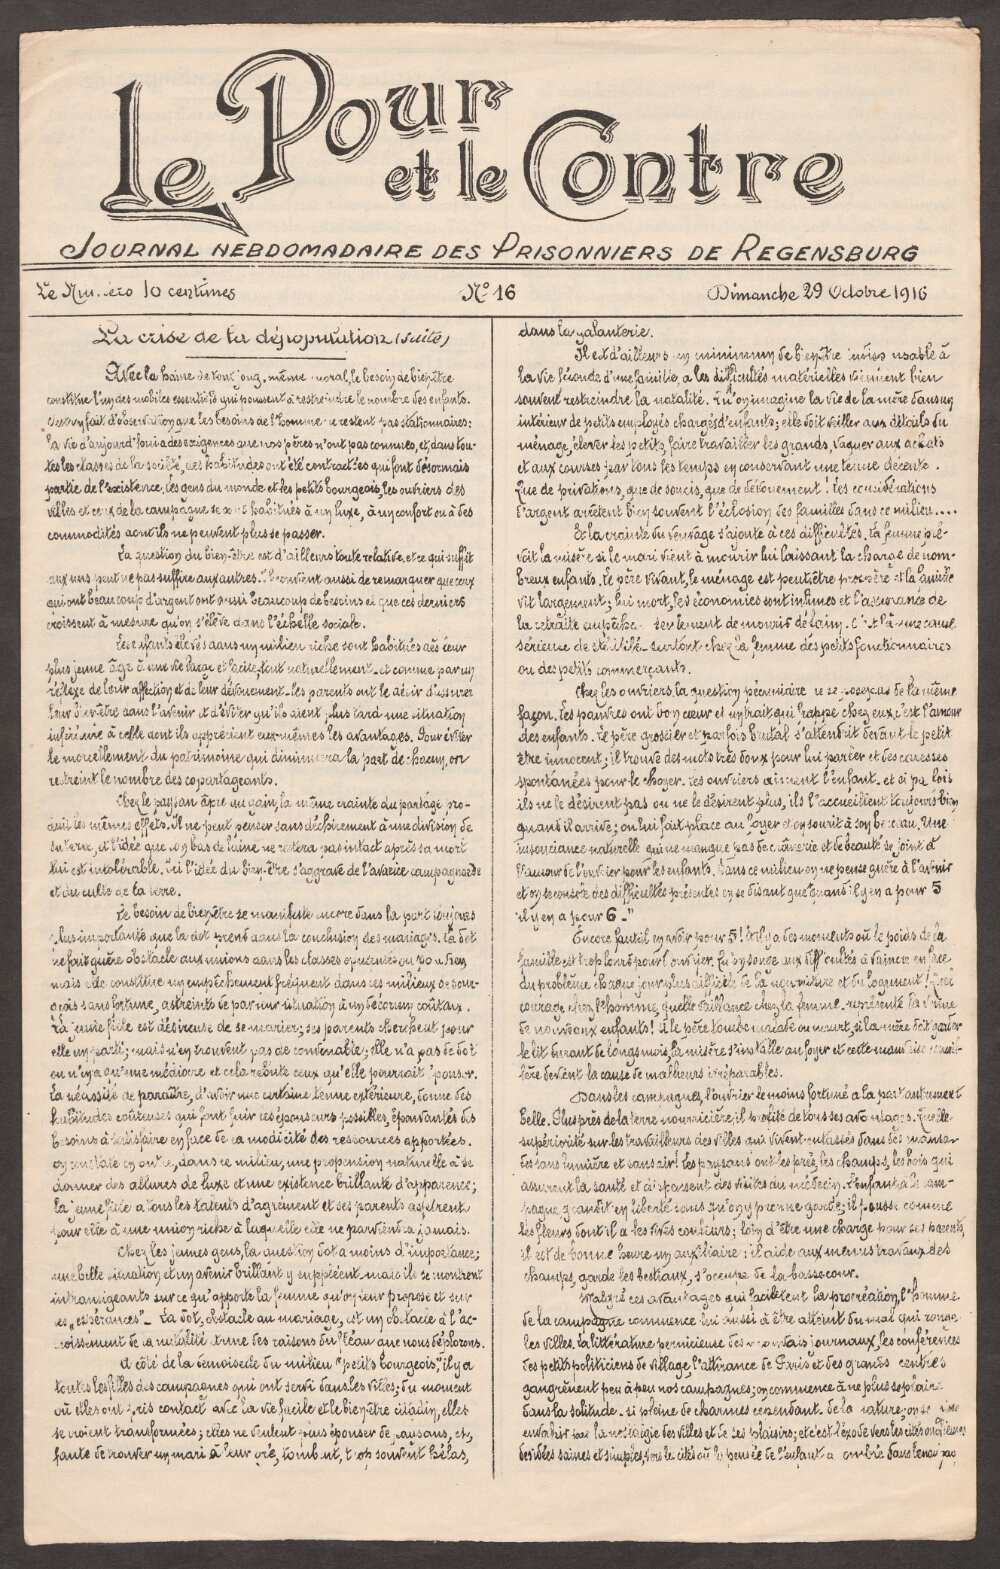 Le Pour
et le Contre
Journal hebdomadaire des Prisonniers de Regensburg
Le Numéro 10 centimes
N° 16
Dimanche 29 Octobre 1916
La crise de la dépopulation (suite)
Avec la haine de tout joug, même moral, le besoin de bien-être
constitue l'un des mobiles essentiels qui poussent à restreindre le nombre des enfants.
fait d'observation que les besoins de l'homme ne restent pas stationnaires:
la vie d'aujourd'hui a des exigences que nos pères n'ont pas connues, et, dans tou-
tes les classes de la société, des habitudes ont été contractées qui font désormais
partie de l'existence, les gens du monde et les petits bourgeois, les ouvriers des
villes et ceux de la campagne se sont habitués à un luxe, à un confort ou à des
commodités dont ils ne peuvent plus se passer.
La question du bien-être est d'ailleurs toute relative, et ce qui suffit
aux uns peut ne pas suffire aux autres. Il convient aussi de remarquer que ceux
qui ont beaucoup d'argent ont aussi beaucoup de besoins et que ces derniers
croissent à mesure qu'on s'élève dans l'échelle sociale.
Les enfants élevés dans un milieu riche sont habitués dès leur
plus jeune âge à une vie large et facile, tout naturellement et comme par un
réflexe de leur affection et de leur dévouement les parents ont le désir d'assurer
leur bien-être dans l'avenir et d'éviter qu'ils aient plus tard une situation
inférieure à celle dont ils apprécient eux-mêmes les avantages. Pour éviter
le morcellement du patrimoine qui diminuera la part de chacun, on
restreint le nombre des copartageants.
Chez le paysan âpre au gain, la même crainte du partage pro-
duit les mêmes effets. Il ne peut penser sans déchirement à une division de
sa terre, et l'idée que son bas de laine ne restera pas intact après sa mort
lui est intolérable. Ici l'idée du bien-être s'aggrave de l'avarice campagnarde
et du culte de la terre.
Le besoin de bien-être se manifeste encore dans la part toujours
plus importante que la dot prend dans la conclusion des mariages. La dot
ne fait guère obstacle aux unions dans les classes
mais elle constitue un empêchement fréquent dans les milieux de bour-
geois sans fortune, astreints de par leur situation à un decorum coûteux.
La jeune fille est désireuse de se marier; ses parents cherchent pour
elle un parti; mais n'en trouvent pas de convenable; elle n'a pas de dot
ou n'en a qu'une médiocre et cela rebute ceux qu'elle pourrait épouser.
La nécessité de paraître, d'avoir une certaine tenue extérieure, donne des
habitudes coûteuses qui font fuir les épouseurs possibles, épouvantés des
besoins à satisfaire en face de la modicité des ressources apportées.
On constate en outre, dans ce milieu, une propension naturelle à se
donner des allures de luxe et une existence brillante d'apparence;
la jeune fille a tous les talents d'agrément et ses parents aspirent
pour elle à une union riche à laquelle elle ne parviendra jamais.
Chez les jeunes gens, la question dot a moins d'importance;
une belle situation et un avenir brillant y suppléent mais ils se montrent
intransigeants sur ce qu'apporte la femme qu'on leur propose et sur
ses „espérances". La dot, obstacle au mariage, est un obstacle à l'ac-
croissement de la natalité et une des raisons du fléau que nous déplorons.
A côté de la demoiselle du milieu "petits bourgeois", il y a
toutes les filles des campagnes qui ont servi dans les villes; du moment
où elles ont pris contact avec la vie facile et le bien-être citadin, elles
se croient transformées; elles ne veulent plus épouser de paysans, et,
faute de trouver un mari à leur gré, tombent, trop souvent hélas,
dans la galanterie.
Il est d'ailleurs un minimum de bien-être indispensable à
la vie féconde d'une famille, et les difficultés matérielles viennent bien
souvent restreindre la natalité. Qu'on imagine la vie de la mère dans un
intérieur de petits employés chargés d'enfants; elle doit veiller aux détails du
ménage, élever les petits, faire travailler les grands, vaquer aux achats
et aux courses par tous les temps en conservant une tenue décente.
Que de privations, que de soucis, que de dévouement! Les considérations
d'argent arrêtent bien souvent l'éclosion des familles dans ce milieu....
Et la crainte du veuvage s'ajoute à ces difficultés. La femme pré-
voit la misère si le mari vient à mourir lui laissant la charge de nom-
breux enfants. Le père vivant, le ménage est peut-être prospère et la famille
vit largement; lui mort, les économies sont infimes et l'assurance de
la retraite empêche seulement de mourir de faim. C'est là une cause
sérieuse de stérilité surtout chez la femme des petits fonctionnaires
ou des petits commerçants.
Chez les ouvriers, la question pécuniaire ne se pose pas de la même
façon. Les pauvres ont bon cœur et un trait qui frappe chez eux, c'est l'amour
des enfants. Le père grossier et parfois brutal s'attendrit devant le petit
être innocent; il trouve des mots très doux pour lui parler et des caresses
spontanées pour le choyer. Les ouvriers aiment l'enfant et si parfois
ils ne le désirent pas ou ne le désirent plus, ils l'accueillent toujours bien
quand il arrive; on lui fait place au foyer et on sourit à son berceau. Une
insouciance naturelle qui ne manque pas de crânerie et de beauté se joint à
l'amour de l'ouvrier pour les enfants. Dans ce milieu on ne pense guère à l'avenir
et on se console des difficultés présentes en se disant que "quand il y en a pour 5
il y en a pour 6."
Encore faut-il en avoir pour 5! Il y a des moments où le poids de la
famille est trop lourd pour l'ouvrier. Qu'on songe aux difficultés à vaincre en face
du problème chaque jour plus difficile de la nourriture et du logement! Quel
courage chez l'homme, quelle vaillance chez la femme représente la venue
de nouveaux enfants! Si le père tombe malade ou meurt, si la mère doit garder
le lit durant de longs mois, la misère s'installe au foyer et cette mauvaise conseil-
lère devient la cause de malheurs irréparables.
Dans les campagnes, l'ouvrier le moins fortuné a la part autrement
belle. Plus près de la terre nourricière, il profite de tous ses avantages. Quelle
supériorité sur les travailleurs des villes qui vivent entassés dans des mansar-
des sans lumière et sans air! Les paysans ont les prés, les champs, les bois qui
assurent la santé et dispensent des visites du médecin. L'enfant à la cam-
pagne grandit en liberté sans qu'on y prenne garde; il pousse comme
les fleurs dont il a les vives couleurs; loin d'être une charge pour ses parents,
il est de bonne heure un auxiliaire; il aide aux menus travaux des
champs, garde les bestiaux, s'occupe de la basse-cour.
Malgré ces avantages qui facilitent la procréation, l'homme
de la campagne commence lui aussi à être atteint du mal qui ronge
les villes. La littérature pernicieuse des mauvais journaux, les conférences
des petits politiciens de village, l'attirance de Paris et des grands centres
gangrènent peu à peu nos campagnes; on commence à ne plus se plaire
dans la solitude si pleine de charmes cependant de la nature; on se
envahir par la nostalgie des villes et de ses plaisirs; et c'est l'exode vers les cités
des idées saines et simples, vers les cités où la pensée de l'enfant